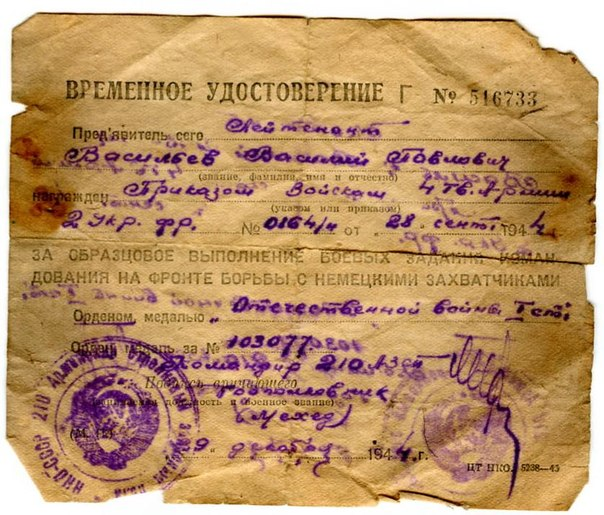 ВРЕМЕННОЕ УДОСТОВЕРЕНИЕ Г № 516733
Пред'явитель сего Лейтенант
Васильев Василий Павлович
(звание, фамилия, имя и отчество)
награжден Приказом Войскам 4 Гв. Армии
(указом или приказом)
2 Укр. фр. № 0164/н от "28" сент. 1944
ЗА ОБРАЗЦОВОЕ ВЫПОЛНЕНИЕ БОЕВЫХ ЗАДАНИЙ КОМАН-
ДОВАНИЯ НА ФРОНТЕ БОРЬБЫ С НЕМЕЦКИМИ ЗАХВАТЧИКАМИ
Орденом, медалью „Отечественной войны I ст."
Орден, медаль за № 103077
Командир 210 АЗСП
Подпись вручающего
Подполковник
должность и военное звание)
(Мехед)
(М. П.)
декабря 1944 г.
НКО-СССР 210
ЦТ НКО. 5238—43